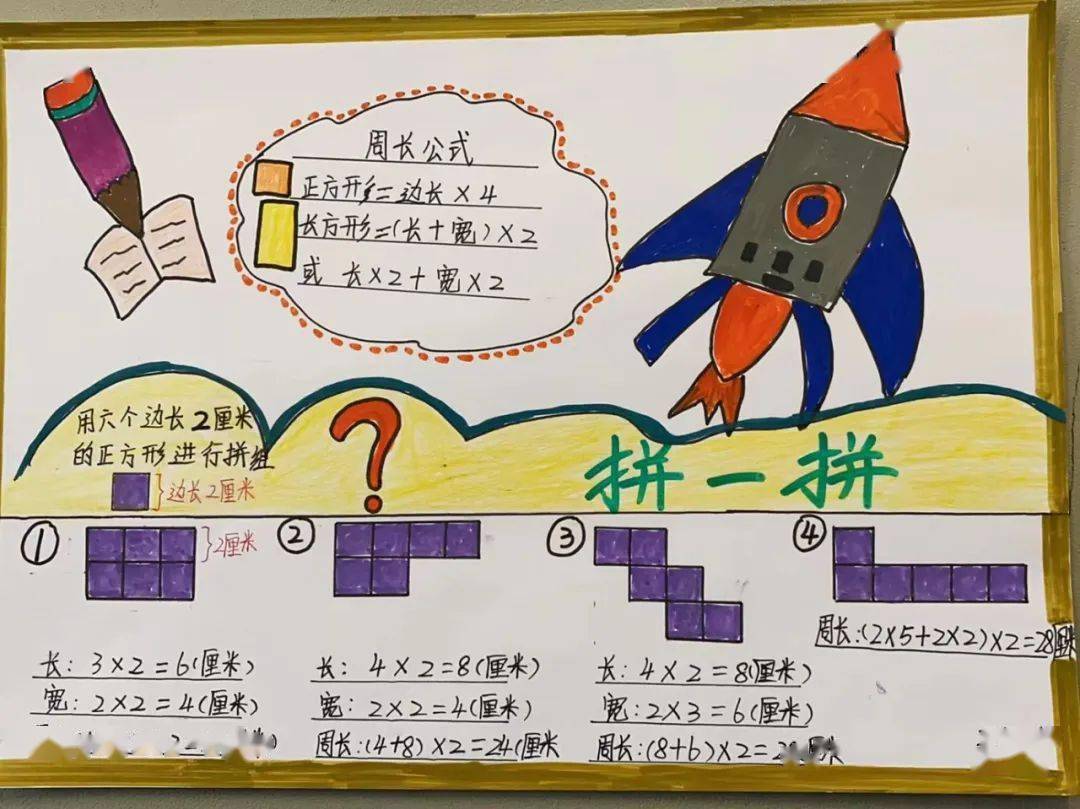 周长公式
正方形=边长×4
长方形=(长+宽)×2
或 长×2+宽×2
用六个边长2厘米
的正方形进行拼组
}边长2厘米
?
拼一拼
①
}2厘米
②
③
④
周长:(2×5+2×2)×2=28厘米
长: 3×2=6(厘米)
宽: 2×2=4(厘米)
长: 4×2=8(厘米)
宽: 2×2=4(厘米)
周长:(4+8)×2=24(厘米
长: 4×2=8(厘米)
宽:2×3=6(厘米)
周长:(8+6)×2=2